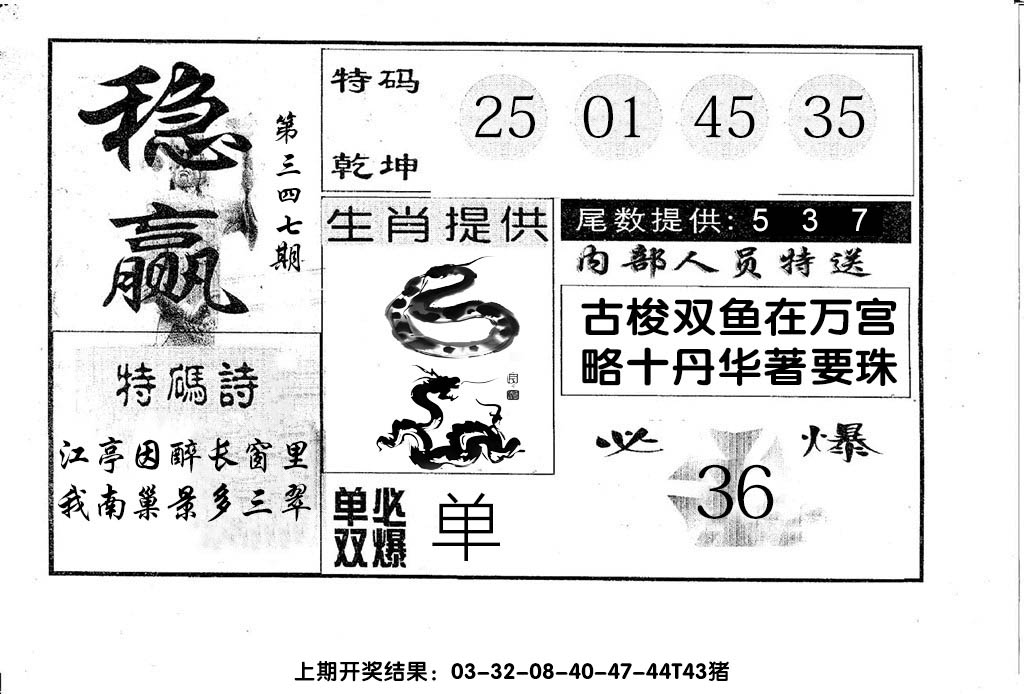 稳赢
第三四七期
特码诗
江亭因醉长窗里
我南巢景多三翠
特码
乾坤
25 01 45 35
生肖提供
单双
必爆
单
尾数提供: 5 3 7
内部人员特送
古梭双鱼在万宫
略十丹华著要珠
必爆
36
上期开奖结果：03-32-08-40-47-44T43猪